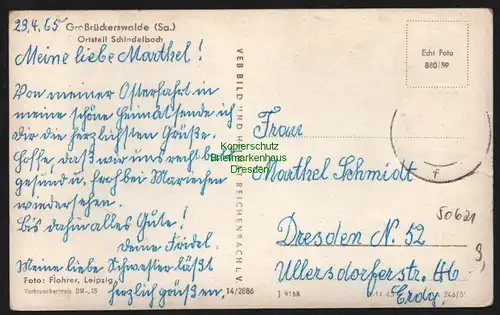 23.4.65
Großrückerswalde (Sa.)
Ortsteil Schindelbach
Meine liebe Marthel!
Von meiner Osterfahrt in
meine schöne Heimat sende ich
Dir die herzlichsten Grüße.
Hoffe, daß wir uns recht bald
gesund u. froh bei Mariechen
wiedersehen.
Bis dahin alles Gute!
Deine Friedel.
Meine liebe Schwester läßt
herzlich grüßen.
Foto: Flohrer, Leipzig
Verbraucherpreis DM -,15
14/2886
VEB BILD UND H REICHENBACH I. V.
Echt Foto
880/59
Frau
Marthel Schmidt
50621
Dresden N. 52
Ullersdorferstr. 46
Erdg.
J 9158
246/5
Kopierschutz
Briefmarkenhaus
Dresden